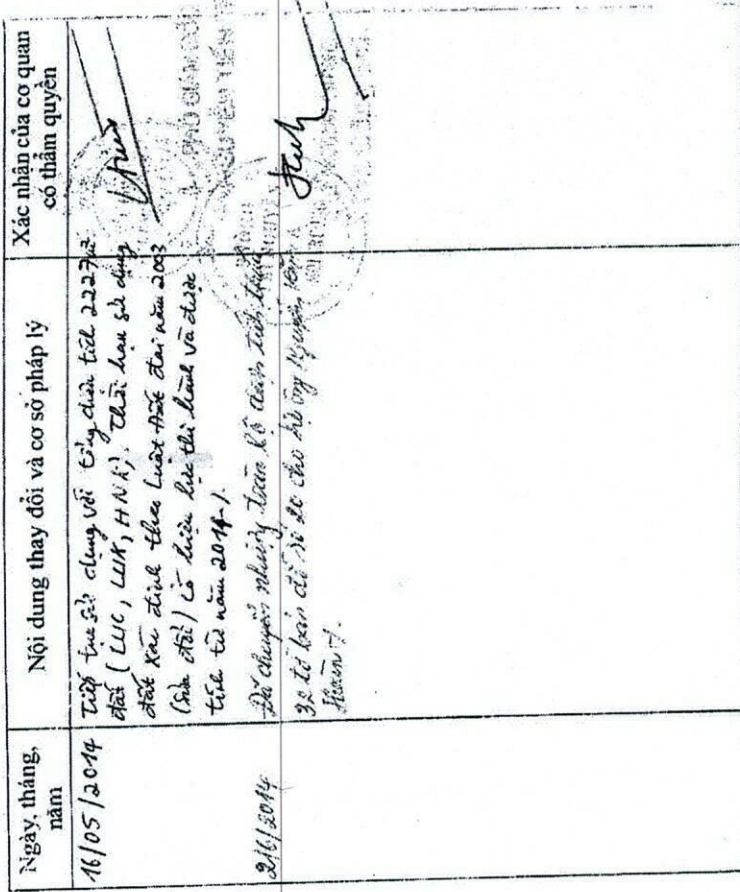 Ngày, tháng,
năm
Nội dung thay đổi và cơ sở pháp lý
Xác nhận của cơ quan
có thẩm quyền
16/05/2014
Tiếp tục sử dụng với tổng diện tích 2227m2
đất (LUC, LUK, HNK). Thời hạn sử dụng
đất xác định theo Luật Đất đai năm 2003
(sửa đổi) có hiệu lực thi hành và được
tính từ năm 2014./.
2/6/2014
Đã chuyển nhượng toàn bộ diện tích thửa
32 tờ bản đồ số 20 cho hộ ông Nguyễn